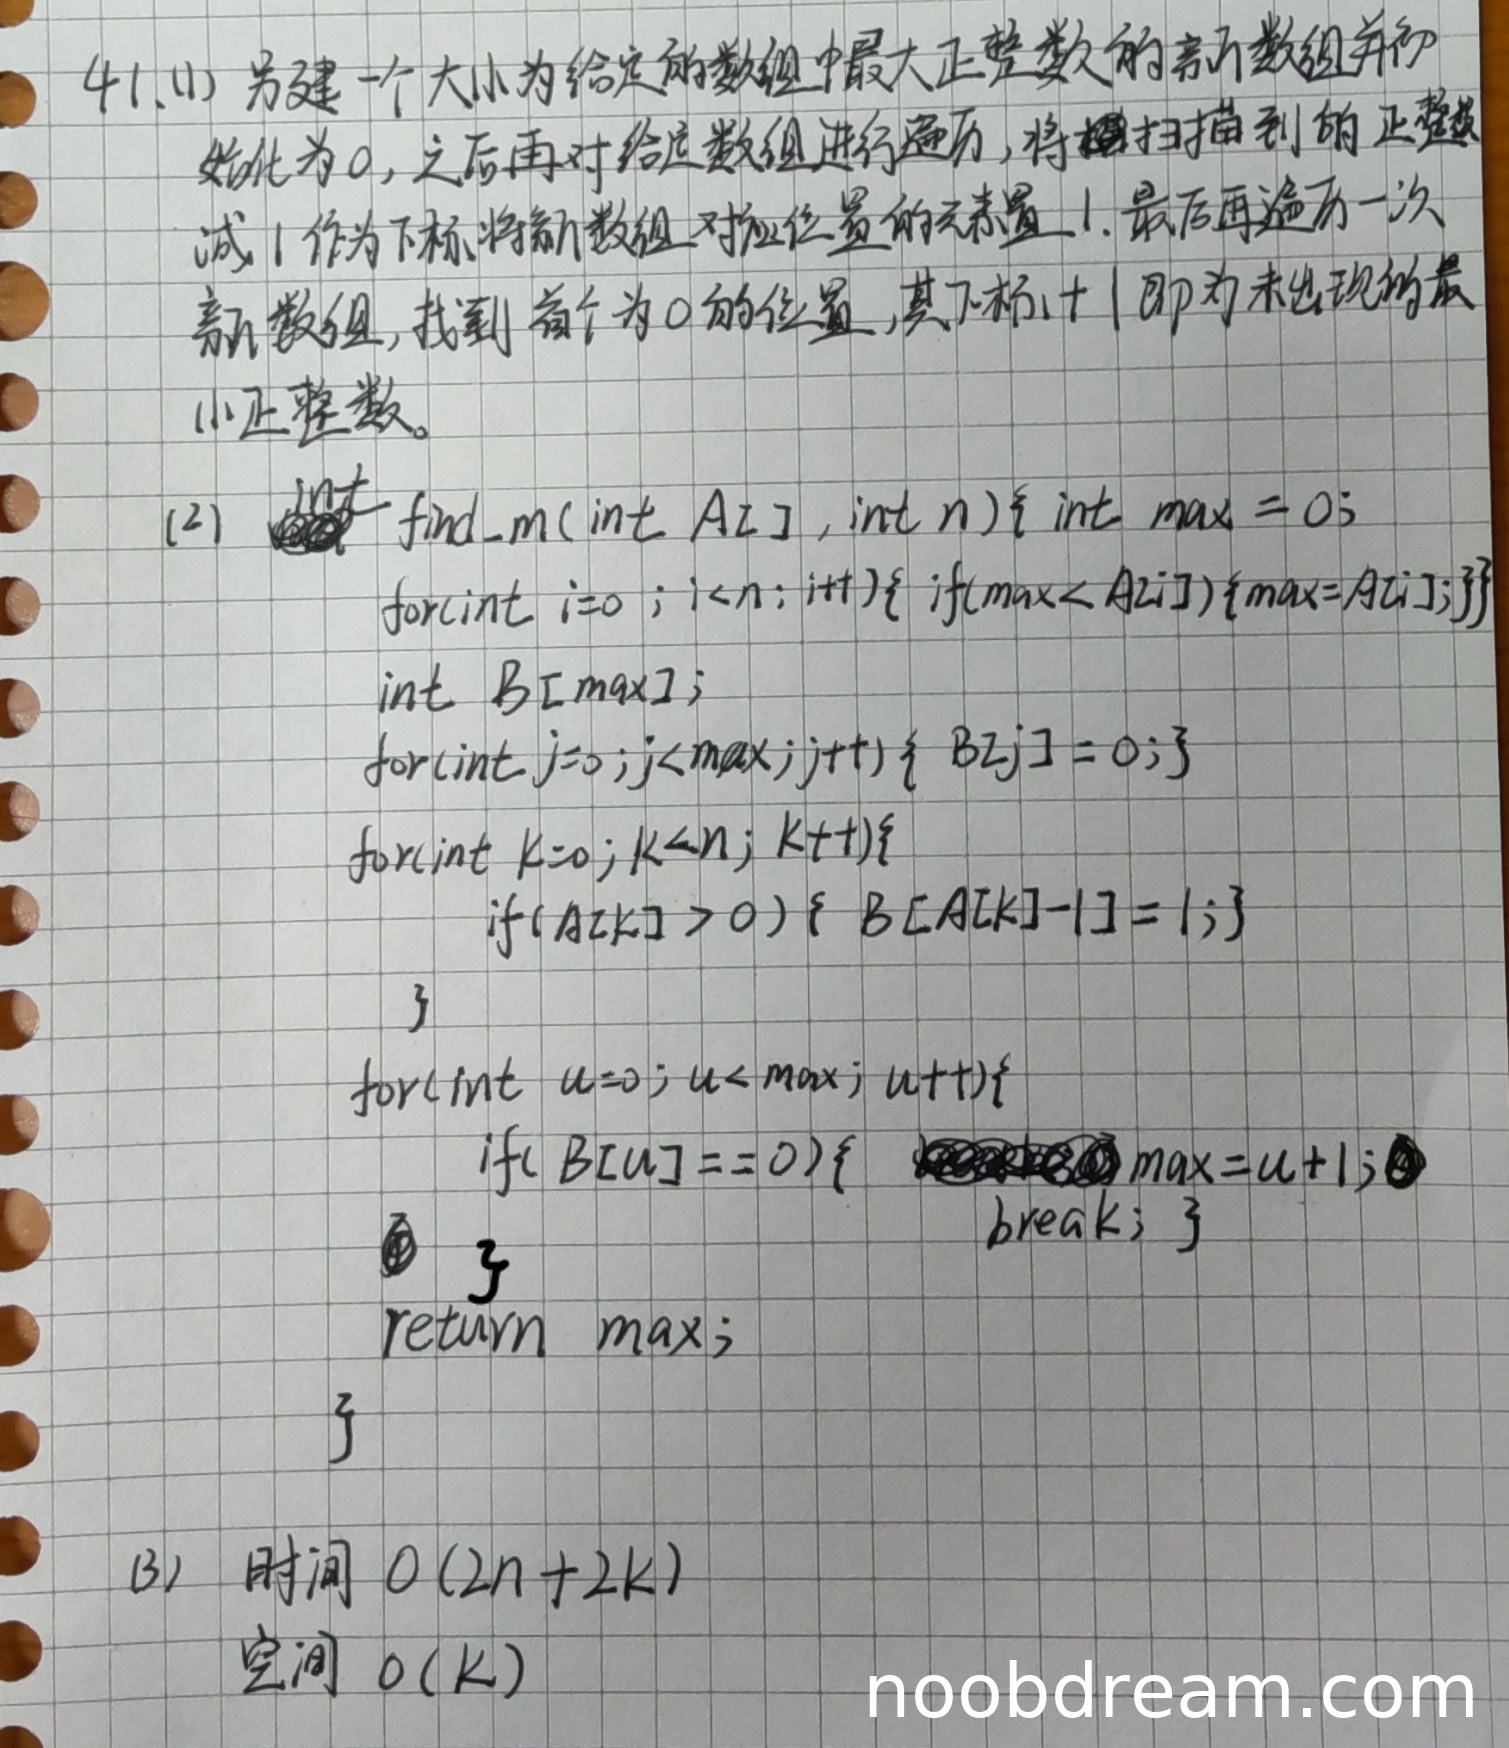 41.(1) 另建一个大小为给定的数组中最大正整数的新数组并初
始化为0,之后再对给定数组进行遍历,将扫描到的正整数
减1作为下标将新数组对应位置的元素置1.最后再遍历一次
新数组,找到首个为0的位置,其下标+1即为未出现的最
小正整数。
(2) int find_m(int A[],int n){ int max = 0;
for(int i=0;i<n;i++){ if(max<A[i]){max=A[i];}}
int B[max];
for(int j=0;j<max;j++){ B[j]=0;}
for(int k=0;k<n;k++){
if(A[k]>0){ B[A[k]-1]=1;}
}
for(int u=0;u<max;u++){
if(B[u]==0){ max=u+1;
break; }
}
return max;
}
(3) 时间 O(2n+2k)
空间 O(k)
noobdream.com